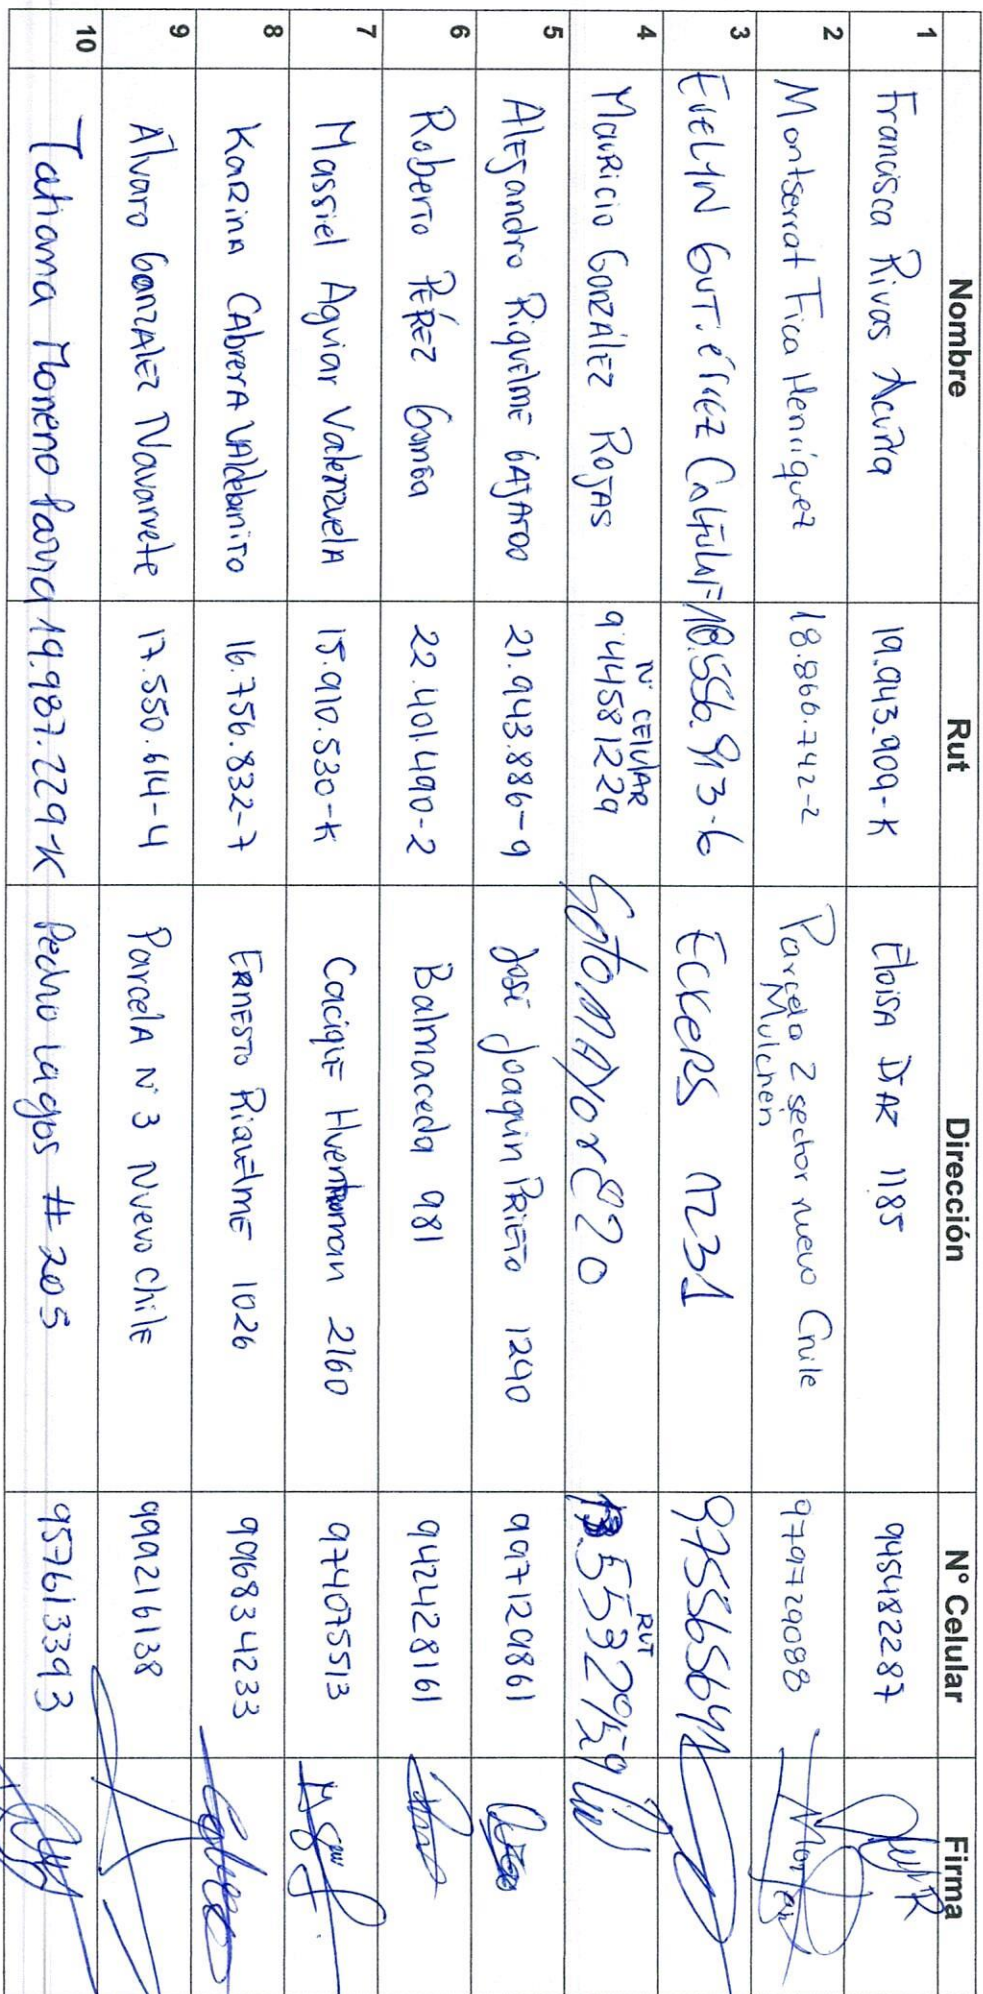 Nombre Rut Dirección N° Celular Firma
1 Francisca Rivas Acuña 19.943.909-K Eloisa Díaz 1185 945482287
2 Montserrat Fica Henríquez 18.866.742-2 Parcela 2 sector nuevo Chile Mulchén 979729098
3 EVELYN GUTiérrez 18.556.913-6 Eckers 1231
4 MAURICIO GONZÁLEZ ROJAS N° CELULAR 944581229 Sotomayor 820 RUT
5 Alejandro Riquelme GAJARDO 21.943.886-9 José Joaquin Prieto 1240 997129861
6 Roberto PÉREZ 22.401.490-2 Balmaceda 981 942428161
7 Massiel Aguiar Valenzuela 15.910.530-K Cacique Huenteman 2160 974075513
8 Karina Cabrera Valdebenito 16.756.832-7 Ernesto Riquelme 1026 996834233
9 Alvaro Gonzalez Navarrete 17.550.614-4 Parcela N°3 Nuevo Chile 999216138
10 Tatiana Moreno Parra 19.987.229-K Pedro Lagos # 205 957613393